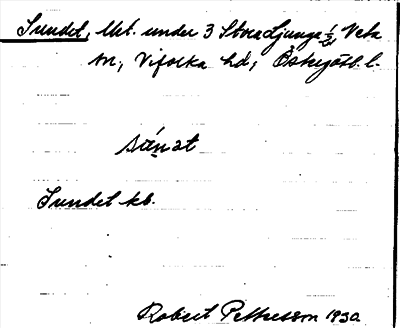 Sundet, Utb. under 3 Stora Ljunga 1/2, Veta
sn, Vifolka hd, Östergötl. l.
sún̥at
Sundet kb.
Robert Pettersson 1930